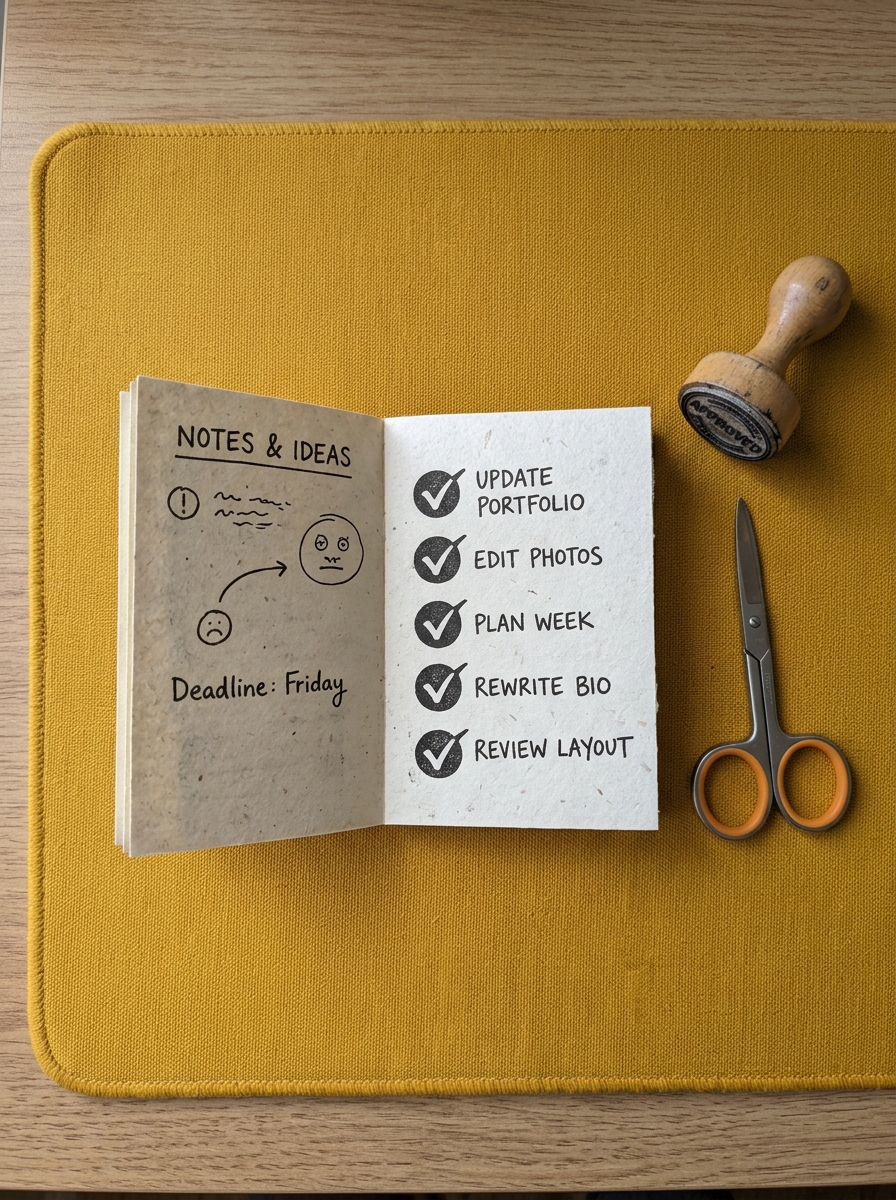 NOTES & IDEAS
!
Deadline: Friday
UPDATE
PORTFOLIO
EDIT PHOTOS
PLAN WEEK
REWRITE BIO
REVIEW LAYOUT
APPROVED